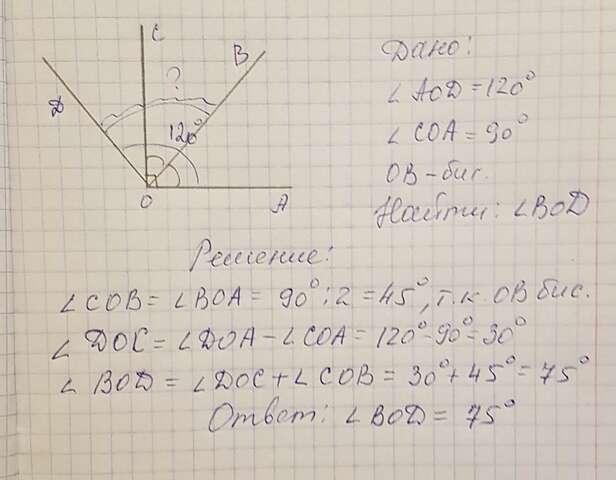 C
B
D
?
120°
O
A
Дано:
∠AOD = 120°
∠COA = 90°
OB – бис.
Найти: ∠BOD
Решение:
∠COB = ∠BOA = 90° : 2 = 45°, т.к. OB бис.
∠DOC = ∠DOA – ∠COA = 120° – 90° = 30°
∠BOD = ∠DOC + ∠COB = 30° + 45° = 75°
Ответ: ∠BOD = 75°